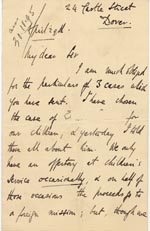 24 Castle Street
Dover.
April 29th
My dear Sir
I am much obliged
for the particulars of 3 cases which
you have sent. I have chosen
the case of E. for
our children, & yesterday I told
them all about him. We only
have an offertory at children's
service occasionally, & on half of
those occasions the proceeds go to
a foreign mission; but, though we